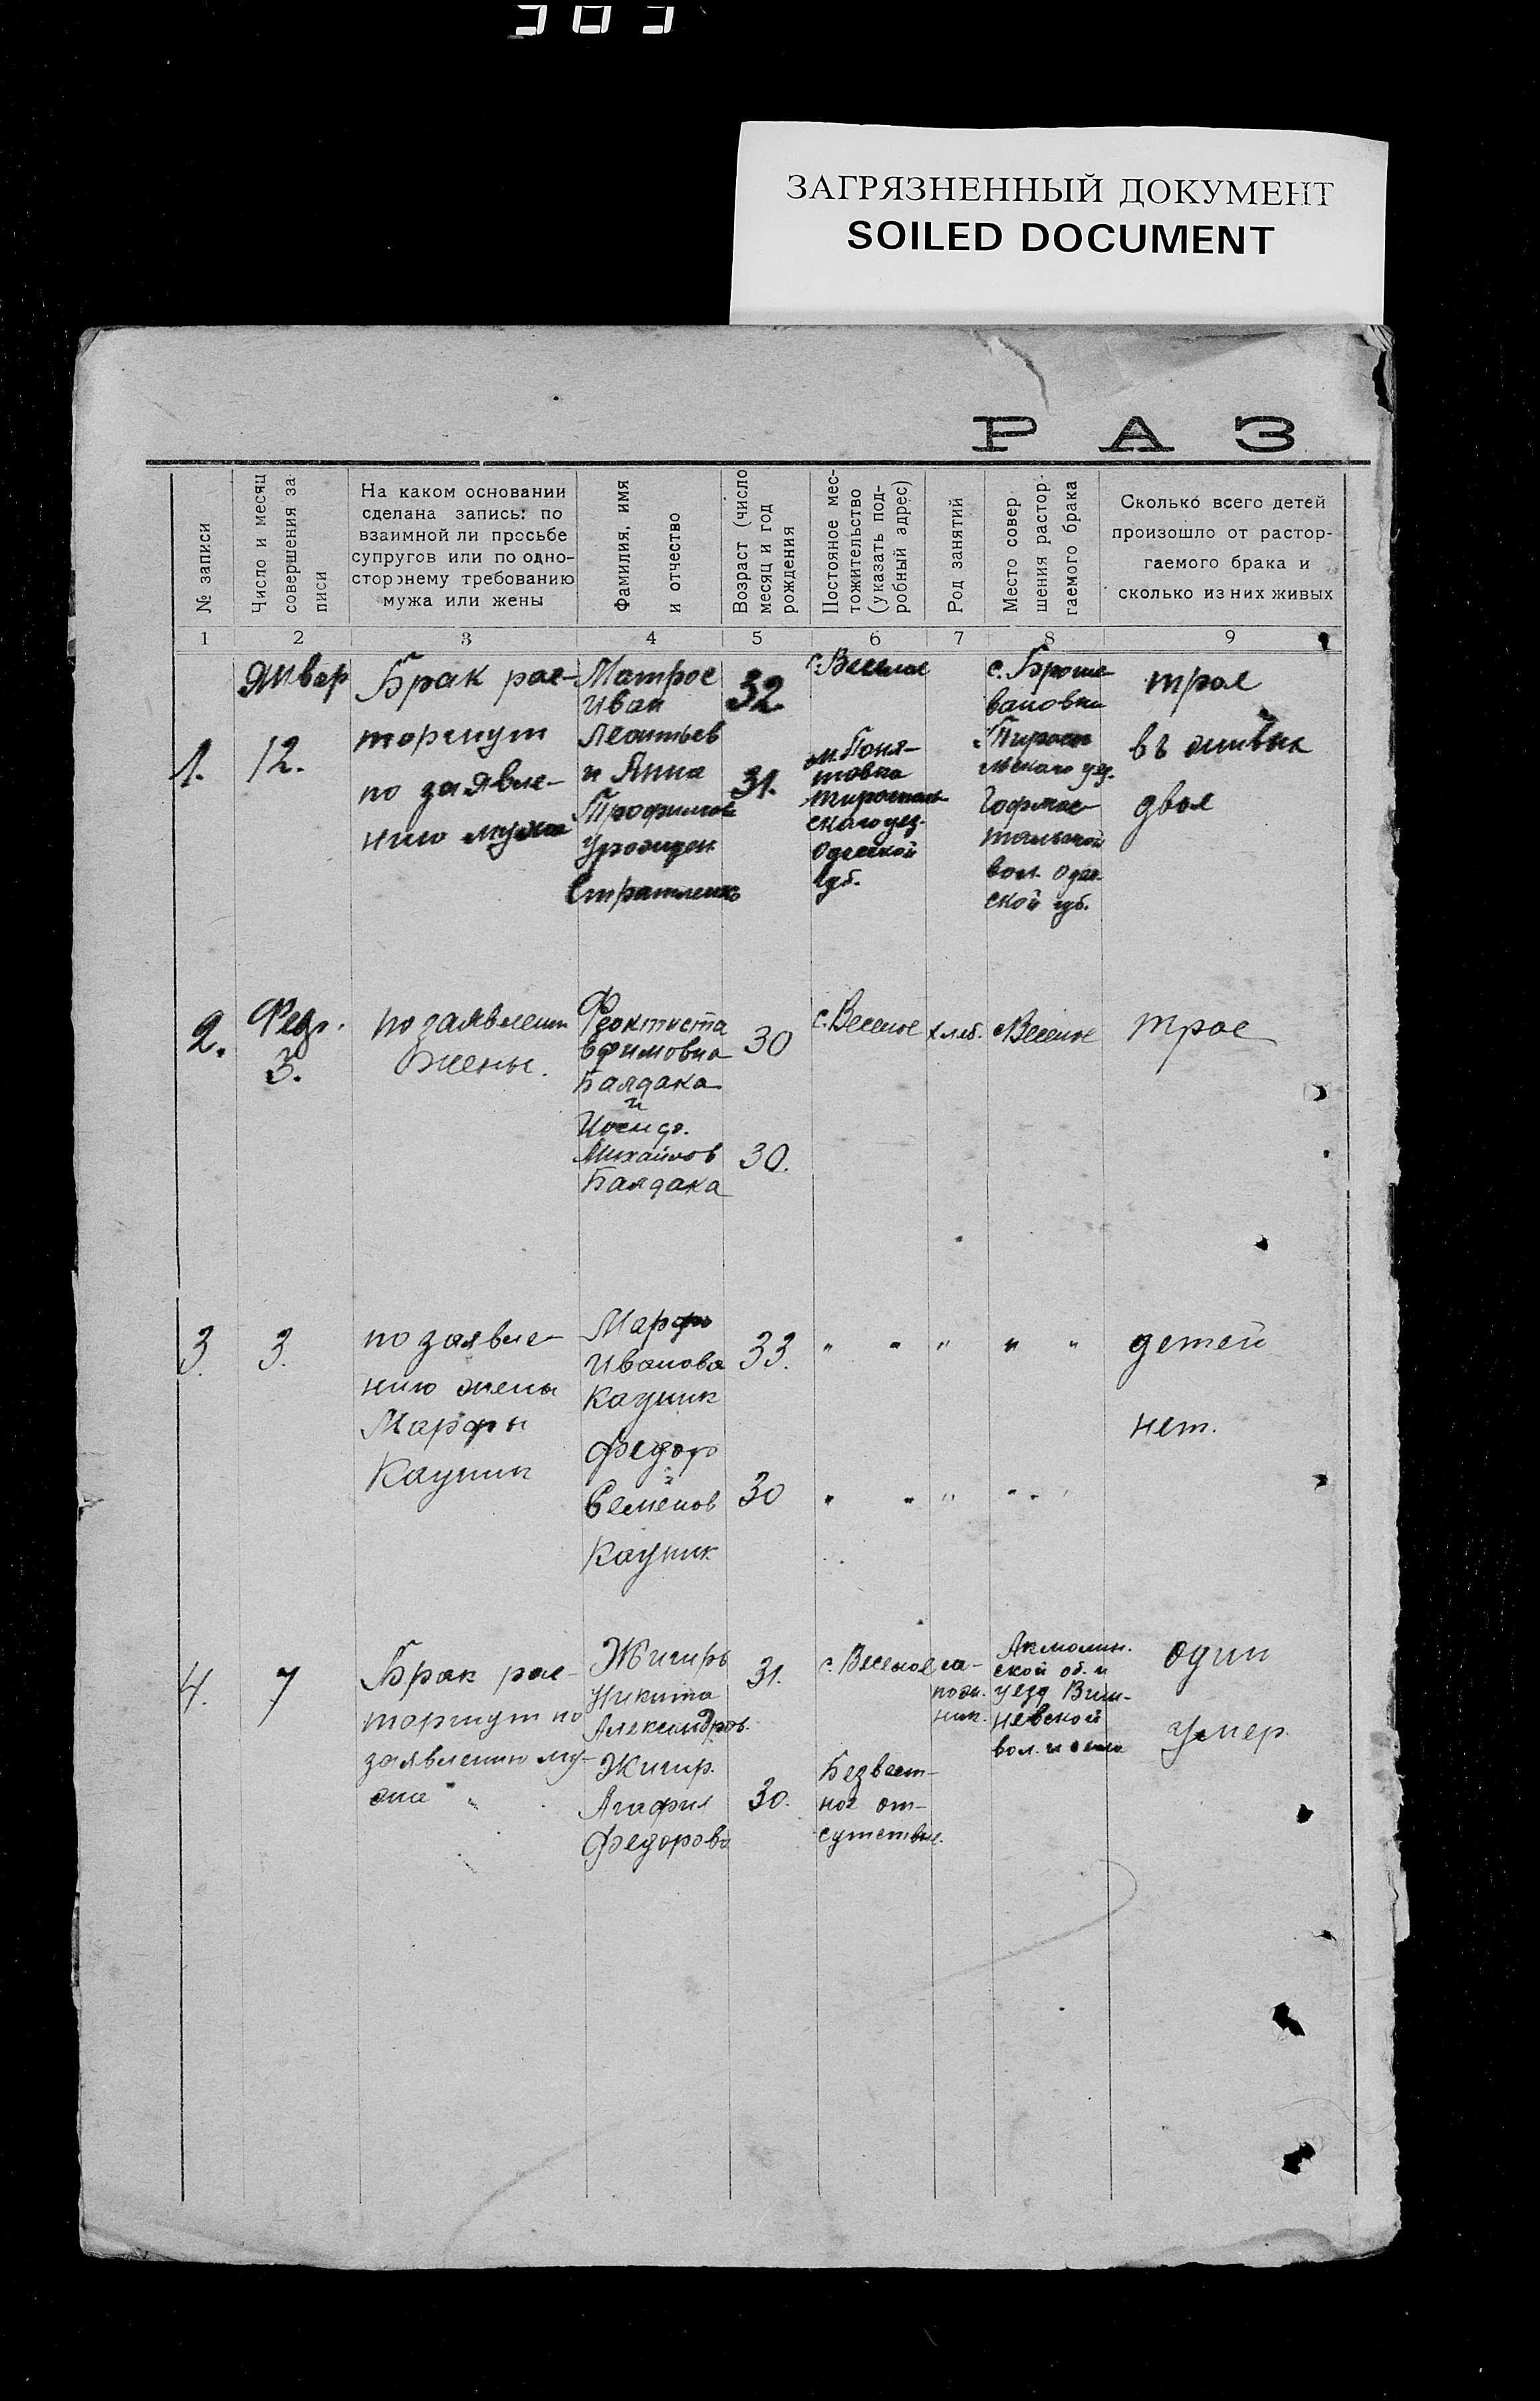 ЗАГРЯЗНЕННЫЙ ДОКУМЕНТ
SOILED DOCUMENT
РАЗ
№ записи
Число и месяц
совершения за-
писи
На каком основании
сделана запись: по
взаимной ли просьбе
супругов или по одно-
стороннему требованию
мужа или жены
Фамилия, имя
и отчество
Возраст (число
месяц и год
рождения
Постояное мес-
тожительство
(указать под-
робный адрес)
Род занятий
Место совер
шения растор-
гаемого брака
Сколько всего детей
произошло от растор-
гаемого брака и
сколько из них живых
1 2 3 4 5 6 7 8 9
1.
Январ
12.
Брак рас-
торгнут
по заявле-
нию мужа
Матрос
Иван
Леонтьев
и Анна
Трофимов
урожден
32
31.
с. Веселое
м. Поня-
товка
Тираспол-
скаго уез.
Одесской
губ.
вол. Одес-
ской губ.
трое
въ живых
двое
2.
Февр.
3.
по заявлении
жены.
Феоктиста
Ефимовна
Балдака
и
Михайлов
Балдака
30
30.
с. Веселое
хлеб.
с. Веселое
трое
3.
3.
по заявле-
нию жены
Марфы
Кацник
Марфа
Иванова
Кацник
и
Федор
Семенов
Кацник
33.
30
" " " " "
" " " " "
детей
нет.
4.
7
Брак рас-
торгнут по
заявлению му-
жа
Жигирь
Никита
Александров.
Жигир.
Агафия
Федорова
31.
30.
с. Веселое
Безвест-
ное от-
сутствие.
са-
пож.
ник.
Акмолин.
ской об. и
уезд Виш-
невской
вол. и села
один
умер.